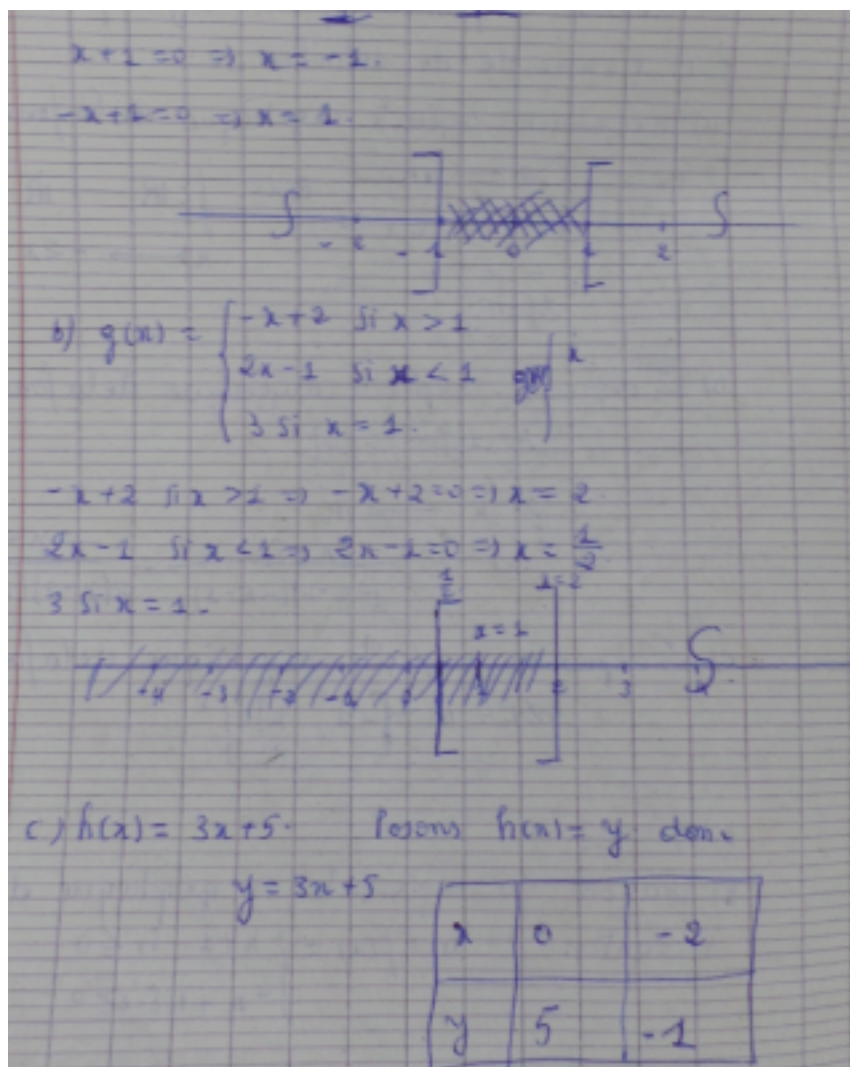 x+1=0 => x = -1.
-x+1=0 => x = 1.
-2 -1 0 1 2
b) g(x) = { -x+2 si x > 1
2x-1 si x < 1 x
3 si x = 1.
-x+2 si x >1 => -x+2=0 => x = 2
2x-1 si x <1 => 2x-1=0 => x = 1/2
3 si x = 1.
1/2 x=1 x=2
-4 -3 -2 -1 0 2 3
c) h(x) = 3x+5. Posons h(x) = y donc
y = 3x+5
x 0 -2
y 5 -1